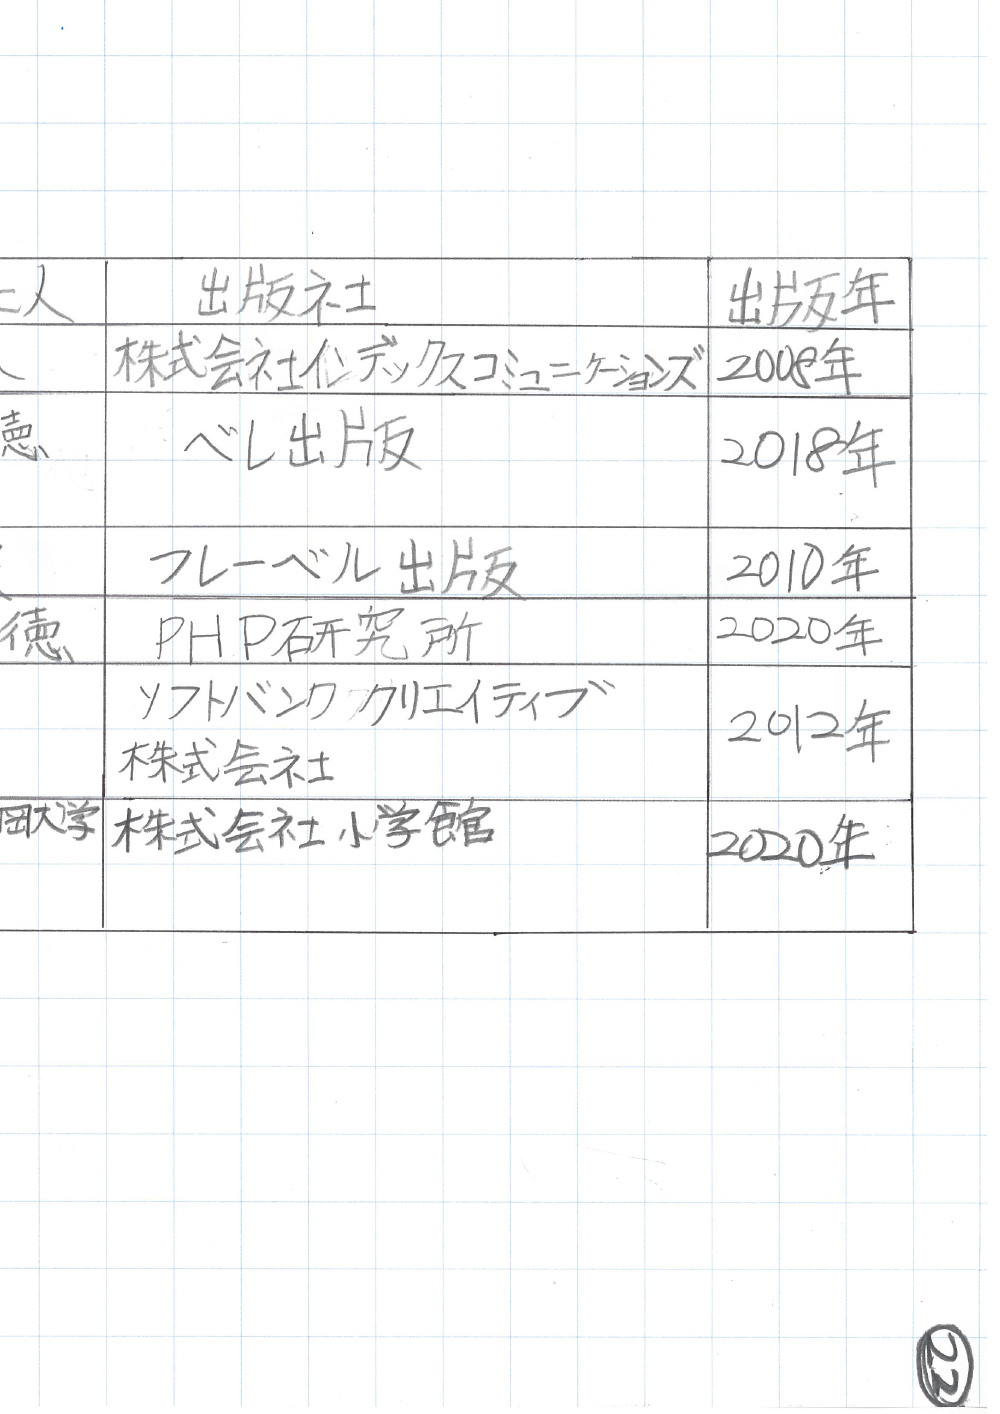 た人 出版社 出版年
人 株式会社インデックスコミュニケーションズ 2008年
徳 ベレ出版 2018年
フレーベル出版 2010年
徳 PHP研究所 2020年
ソフトバンククリエイティブ
株式会社 2012年
岡大学 株式会社小学館 2020年
22